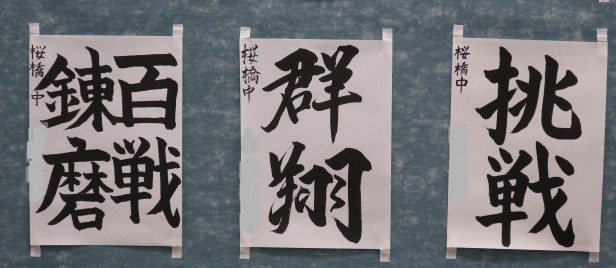 百戦
錬磨
桜橋中
群翔
桜橋中
挑戦
桜橋中